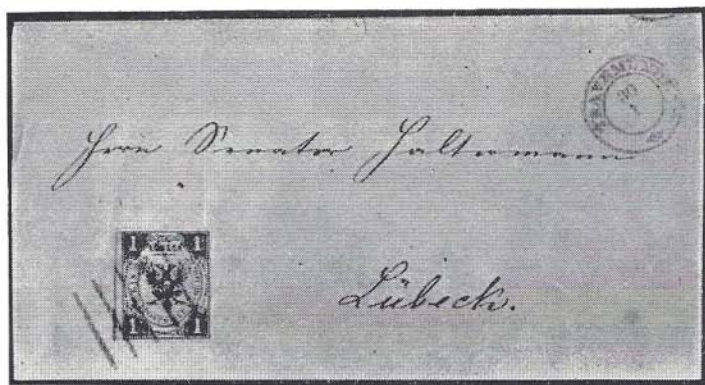 TRAVEMÜNDE
30
1
Herrn Senator Haltermann
1 1
Lübeck.
1 1